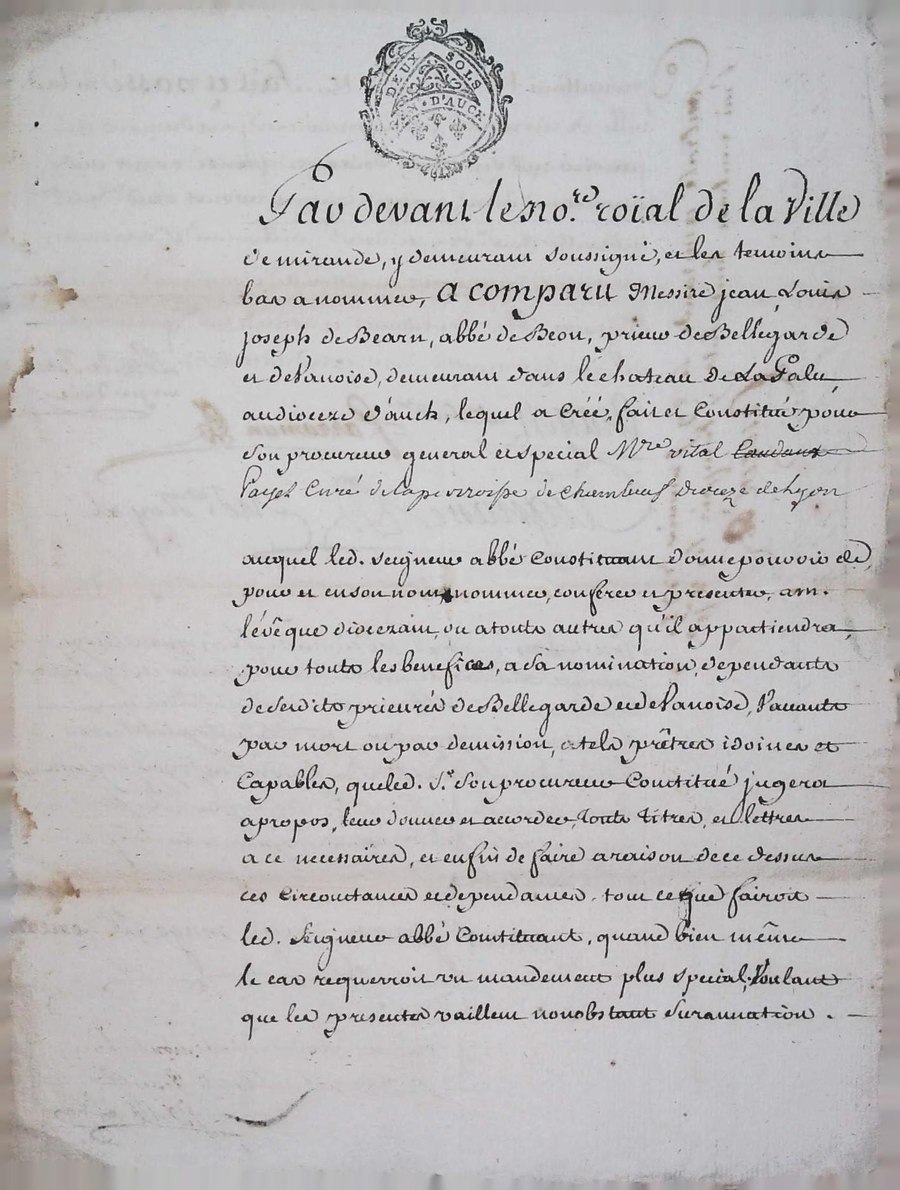 DEUX SOLS
GEN · D'AUCH
Par devant le no.re roïal de la Ville
de mirande, y demeurant soussigné, et les temoins
bas a nommer, a comparu Messire jean Louis
joseph de Bearn, abbé de Beon, prieur de Bellegarde
et de Vanoise, demeurant dans le chateau de La Palu
au dioceze d'auch, lequel a Créé, fait et Constitué pour
son procureur general et special Mre vital
Curé de la perroisse de Chambeuf Dioceze de Lyon
auquel led. seigneur abbé Constituant donne pouvoir de,
pour et en son nom nommer, conferer et presenter, a m.
l'évêque diocezain, ou a touts autres qu'il appartiendra,
pour touts les benefices, a sa nomination, dependants
de sesdits prieurés de Bellegarde et de Vanoise, Vacants
par mort ou par demission, a tels prêtres idoines et
Capables, que led. Sr. son procureur Constitué jugera
a propos, leur donner et accorder, touts titres, et lettres
a ce necessaires, et enfin de faire a raison de ce dessus
ces Circonctances et dependances, tout ce que fairoit
led. Seigneur abbé Constituant, quand bien même
le cas requerroit un mandement plus special, Voulant
que les presentes vaillent nonobstant surannation.